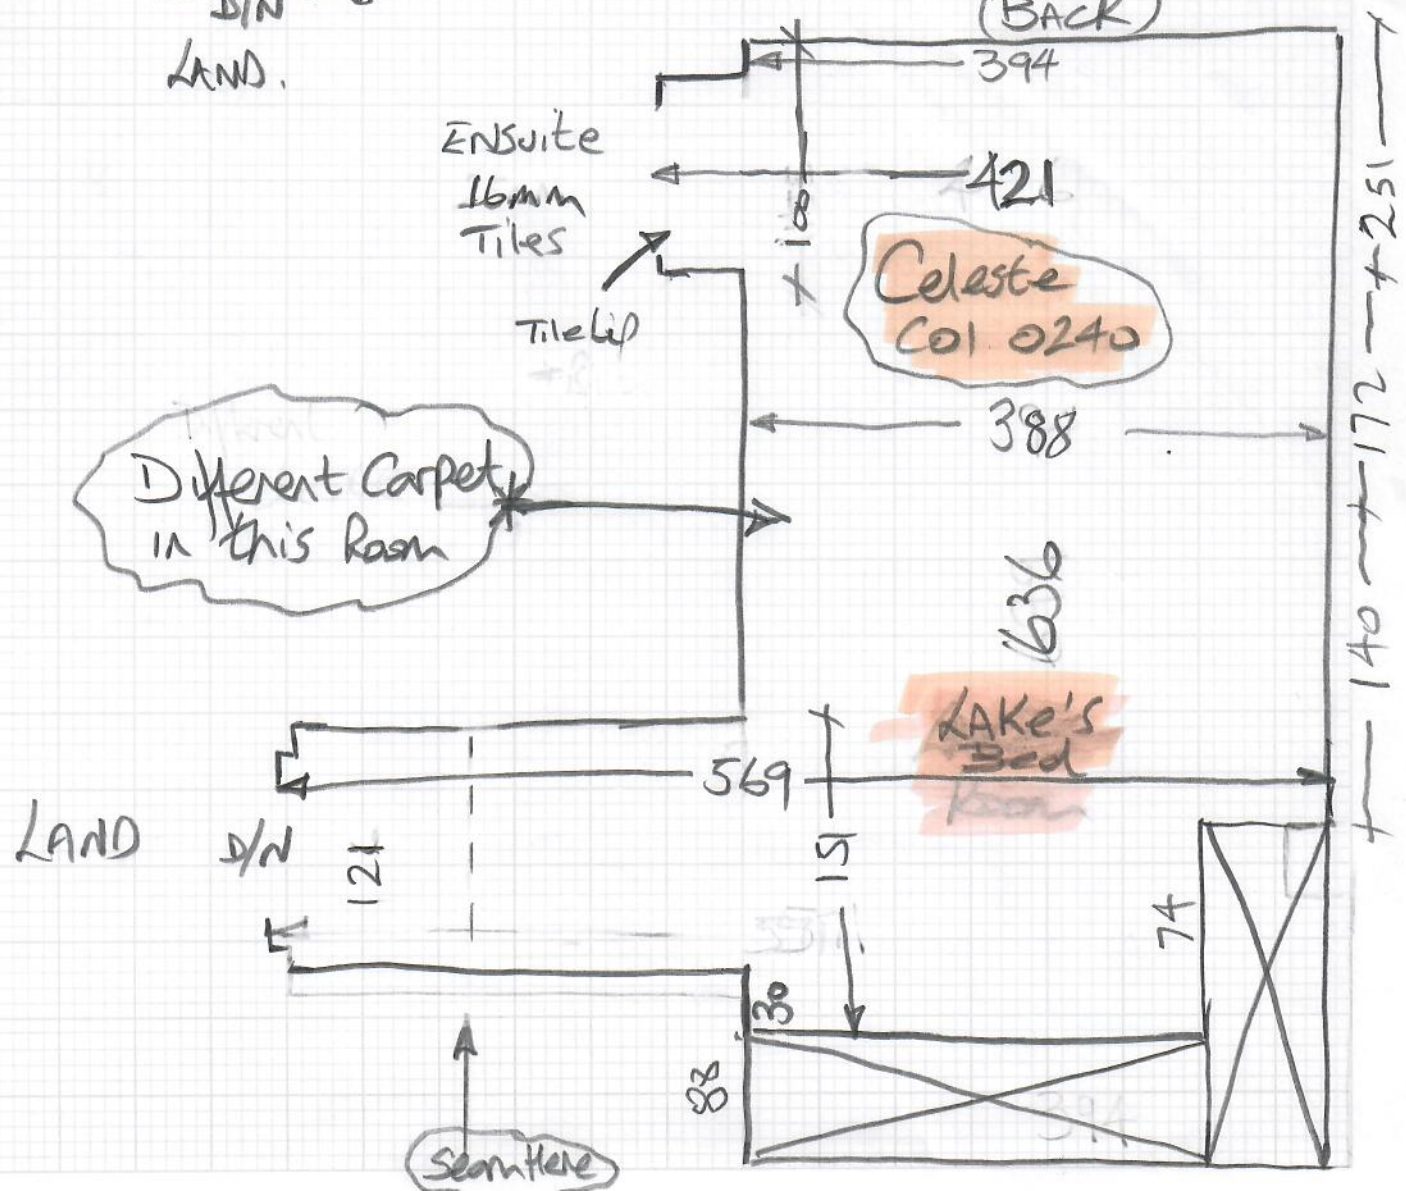 D/N
LAND.
(BACK)
394
ENSuite
16mm
Tiles
421
100
251
Tile Lip
Celeste
Col 0240
172
388
Different Carpet
in this Room
636
140
LAKe's
Bed
Room
569
LAND
D/N
121
151
74
30
88
394
Seam Here